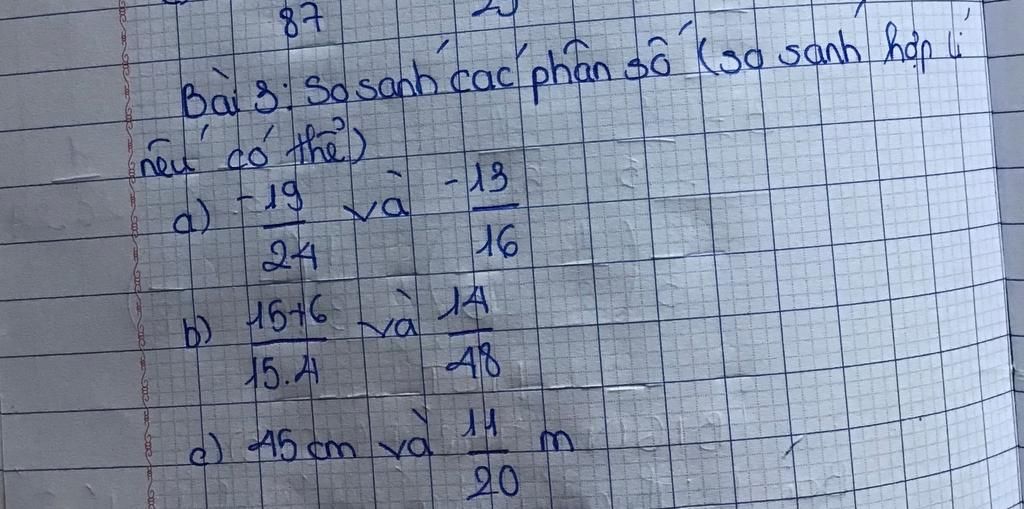 87
Bài 3: So sánh các phân số (so sánh hợp lí
nếu có thể)
a) -19/24 và -13/16
b) 15+6/15.4 và 14/48
c) 45 cm và 11/20 m